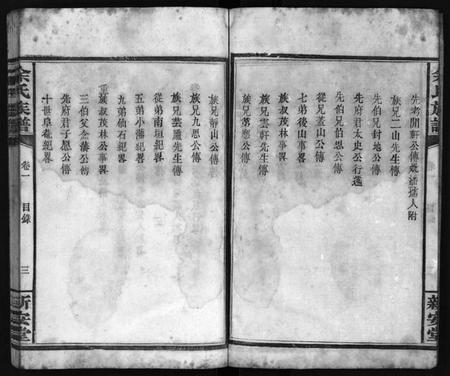 余氏族譜
先考閒軒公傳妣潘孺人附
族兄二山先生傳
先伯兄封地公傳
先府君太史公行蹟
先伯兄伯恩公傳
從兄蓋山公傳
七弟後山事畧
族叔茂林公事畧
族兄雲軒先生傳
族兄第應公傳
族兄靜山公傳
族兄九思公傳
族兄雲通先生傳
從弟南垣紀畧
五弟小藩紀畧
九弟仙石紀畧
族叔茂林公事畧
三伯家念濤公傳
先府君子愿公傳
十世阜菴紀畧
余氏族譜
卷一
目錄
三
新安堂
新安堂